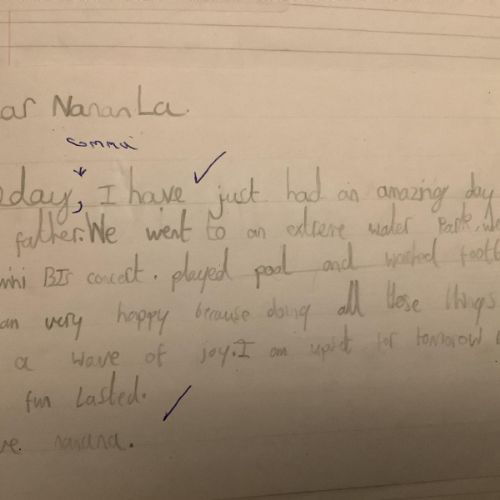 ar Nanan La
comma
oday, I have just had an amazing day
father. We went to an extreme water Park. We
mini BTS concert. played pool and watched footb
an very happy because doing all these things
a wave of joy. I am upset for tomorrow
fun Lasted.
ve nanana.